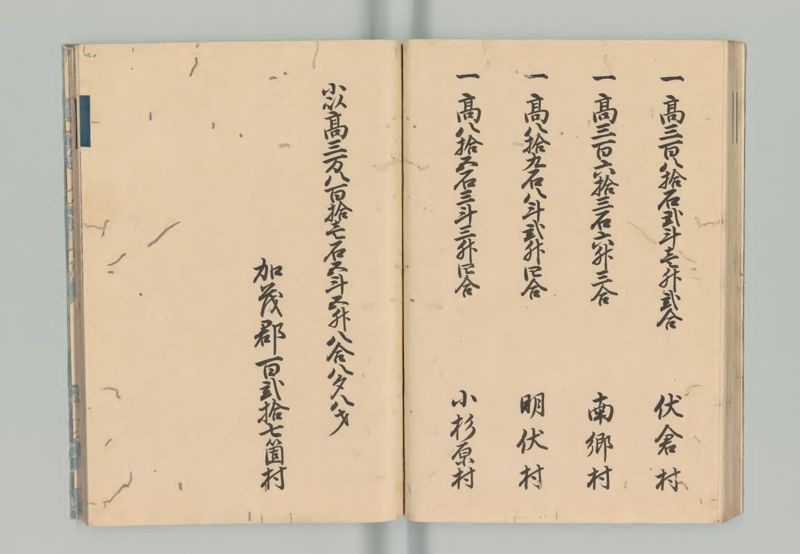 一高三百八拾石弐斗壱升弐合 伏倉村
一高三百六拾三石六升三合 南郷村
一高八拾九石八斗弐升四合 明伏村
一高八拾五石三斗三升四合 小杉原村
小以高三万八百拾七石五斗五升八合八夕八才
加茂郡百弐拾七箇村